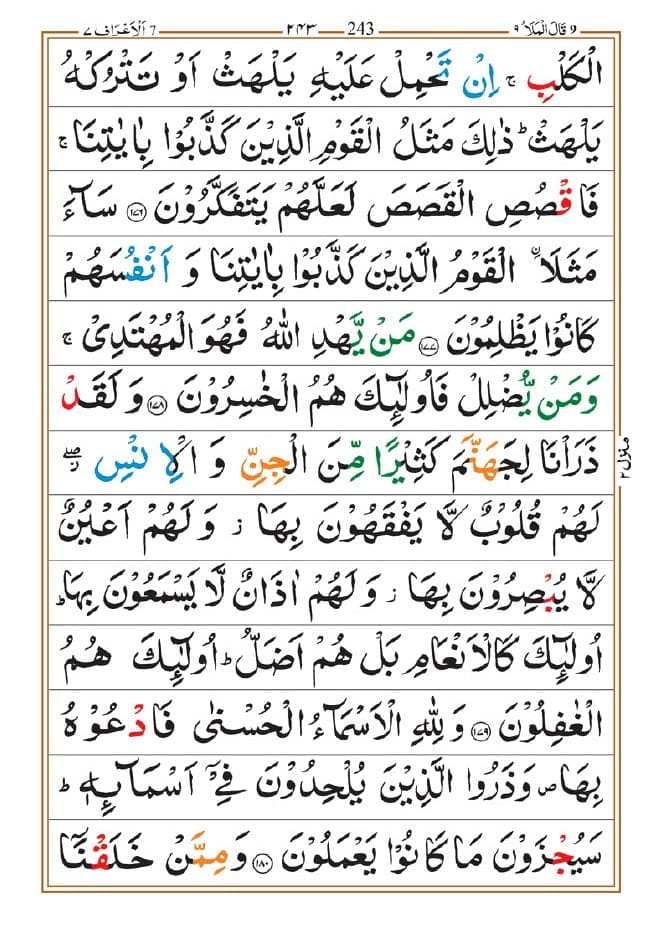 ٩ قَالَ الْمَلَاُ 9 243 ٢٤٣ اَلْاَعْرَاف ٧ 7
الْكَلْبِ ۚ اِنْ تَحْمِلْ عَلَيْهِ يَلْهَثْ اَوْ تَتْرُكْهُ
يَلْهَثْ ؕ ذٰلِكَ مَثَلُ الْقَوْمِ الَّذِيْنَ كَذَّبُوْا بِاٰيٰتِنَا ۚ
فَاقْصُصِ الْقَصَصَ لَعَلَّهُمْ يَتَفَكَّرُوْنَ ﴿۱۷۶﴾ سَآءَ
مَثَلَا ۨ الْقَوْمُ الَّذِيْنَ كَذَّبُوْا بِاٰيٰتِنَا وَ اَنْفُسَهُمْ
كَانُوْا يَظْلِمُوْنَ ﴿۱۷۷﴾ مَنْ يَّهْدِ اللّٰهُ فَهُوَ الْمُهْتَدِىْ ۚ
وَمَنْ يُّضْلِلْ فَاُولٰٓئِكَ هُمُ الْخٰسِرُوْنَ ﴿۱۷۸﴾ وَ لَقَدْ
ذَرَاْنَا لِجَهَنَّمَ كَثِيْرًا مِّنَ الْجِنِّ وَ الْاِنْسِ ۖ
لَهُمْ قُلُوْبٌ لَّا يَفْقَهُوْنَ بِهَا ز وَ لَهُمْ اَعْيُنٌ
لَّا يُبْصِرُوْنَ بِهَا ز وَ لَهُمْ اٰذَانٌ لَّا يَسْمَعُوْنَ بِهَا ؕ
اُولٰٓئِكَ كَالْاَنْعَامِ بَلْ هُمْ اَضَلُّ ؕ اُولٰٓئِكَ هُمُ
الْغٰفِلُوْنَ ﴿۱۷۹﴾ وَ لِلّٰهِ الْاَسْمَآءُ الْحُسْنٰى فَادْعُوْهُ
بِهَا ص وَ ذَرُوا الَّذِيْنَ يُلْحِدُوْنَ فِىْٓ اَسْمَآئِهٖ ؕ
سَيُجْزَوْنَ مَا كَانُوْا يَعْمَلُوْنَ ﴿۱۸۰﴾ وَ مِمَّنْ خَلَقْنَآ
منزل ٢